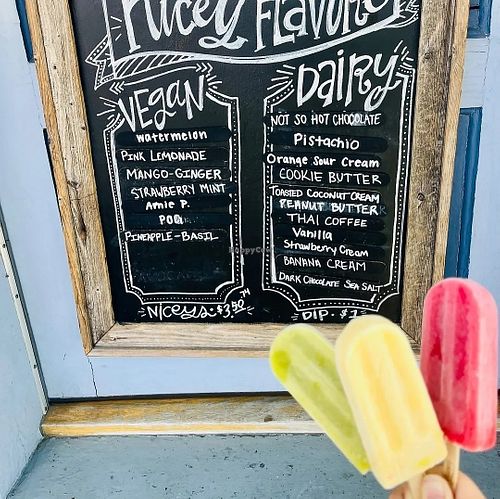 Nicey Flavors
VEGAN
Watermelon
PINK LEMONADE
MANGO-GINGER
STRAWBERRY MINT
Arnie P.
POG
PINEAPPLE-BASIL
NICEYS. $3.50
DAIRY
NOT SO HOT CHOCOLATE
Pistachio
Orange Sour Cream
COOKIE BUTTER
TOASTED COCONUT CREAM
PEANUT BUTTER
THAI COFFEE
Vanilla
Strawberry Cream
BANANA CREAM
DARK CHOCOLATE SEA SALT
DIP. $1